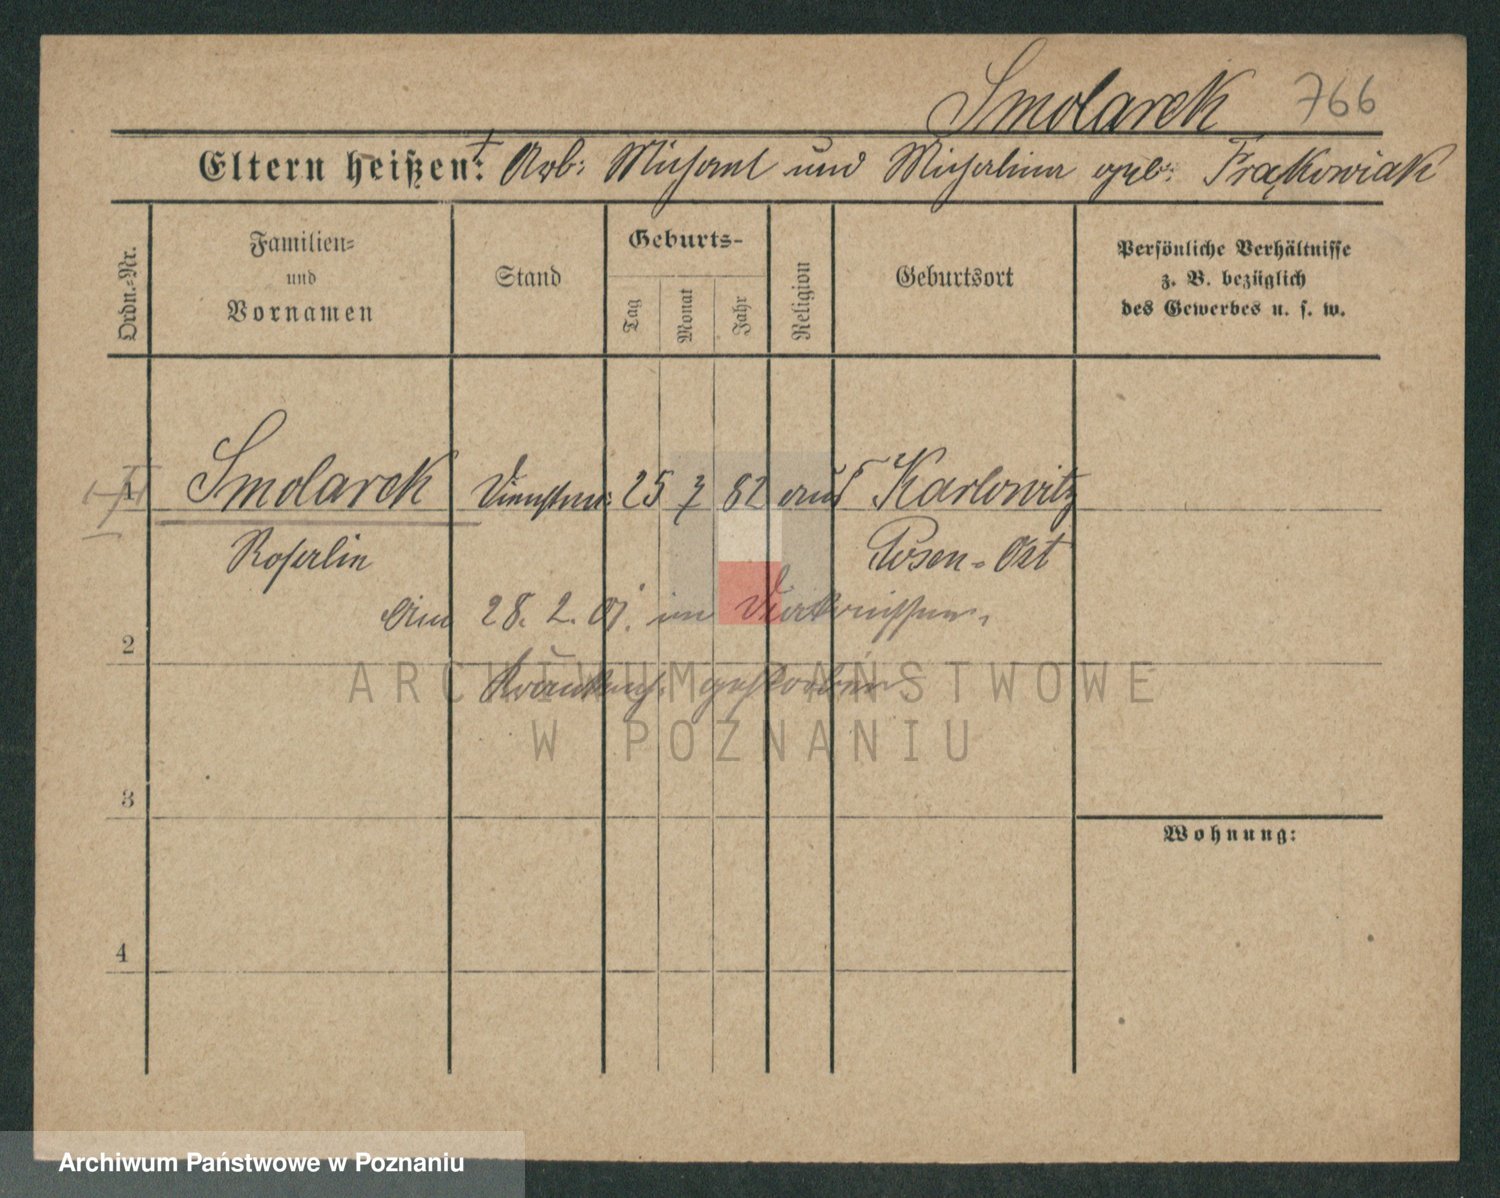 Smolarek 766
Eltern heißen: † Arb: Michael und Michalina geb: Frąkowiak
Ordn.-Nr.
Familien-
und
Vornamen
Stand
Geburts-
Tag
Monat
Jahr
Religion
Geburtsort
Persönliche Verhältnisse
z. B. bezüglich
des Gewerbes u. s. w.
1 Smolarek 25 7 82 Karlowitz
Rosalin Posen-Ost
Am 28. 2. 07. im Diakonissen-
2
Krankenh: gestorben
3
Wohnung:
4
ARCHIWUM PAŃSTWOWE
W POZNANIU
Archiwum Państwowe w Poznaniu